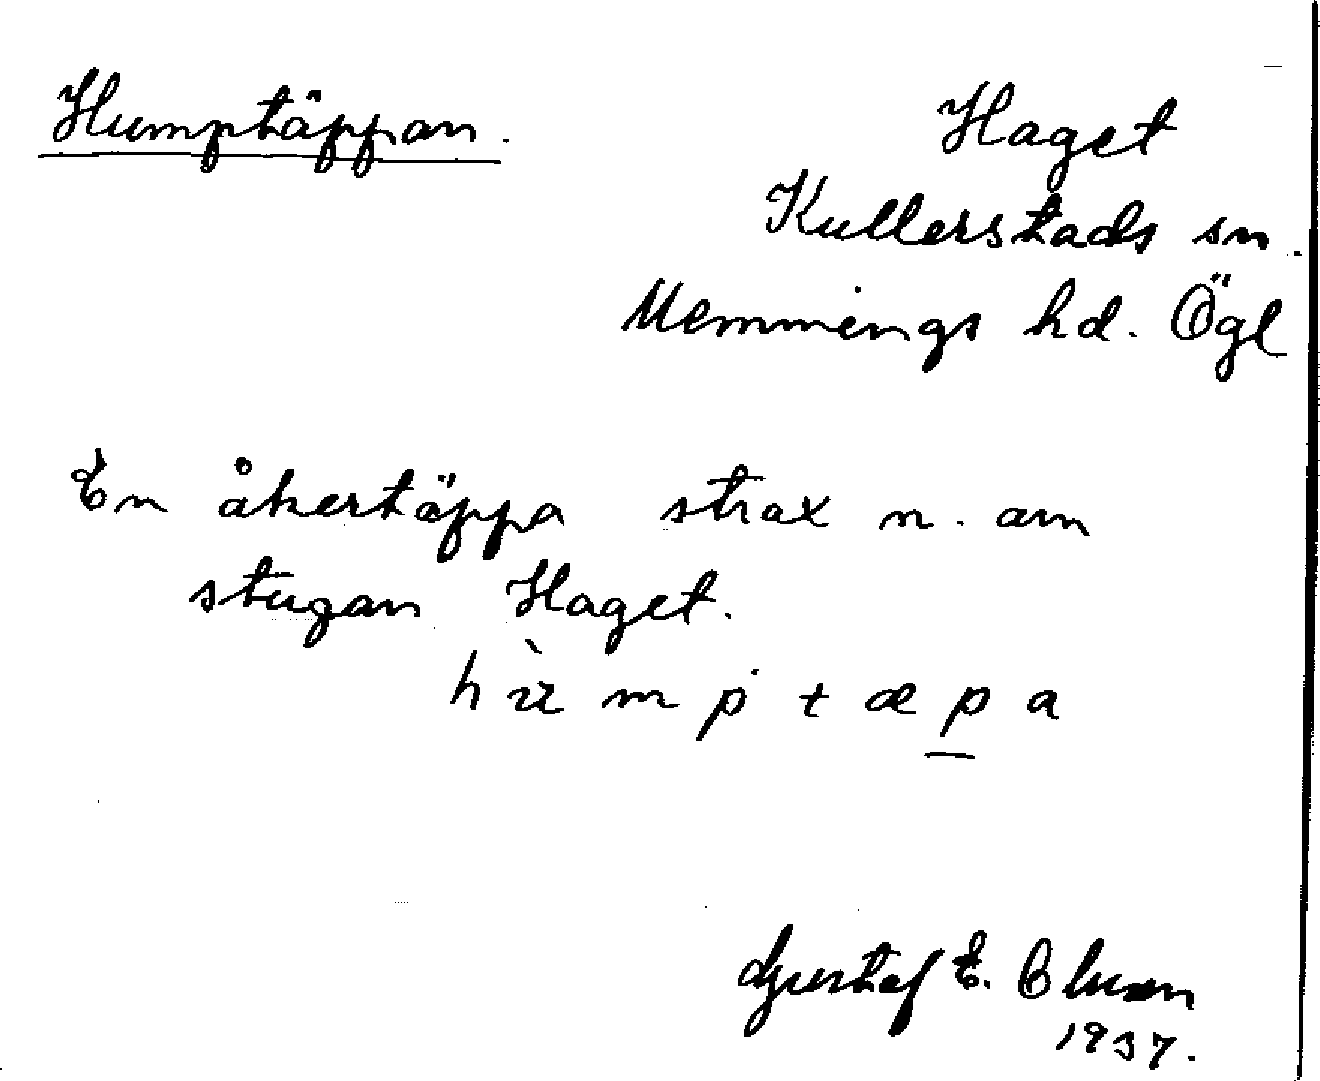 Humptäppan.
Haget
Kullerstads sn.
Memmings hd. Ögl
En åkertäppa strax n. om
stugan Haget.
Gustaf E.
1937.